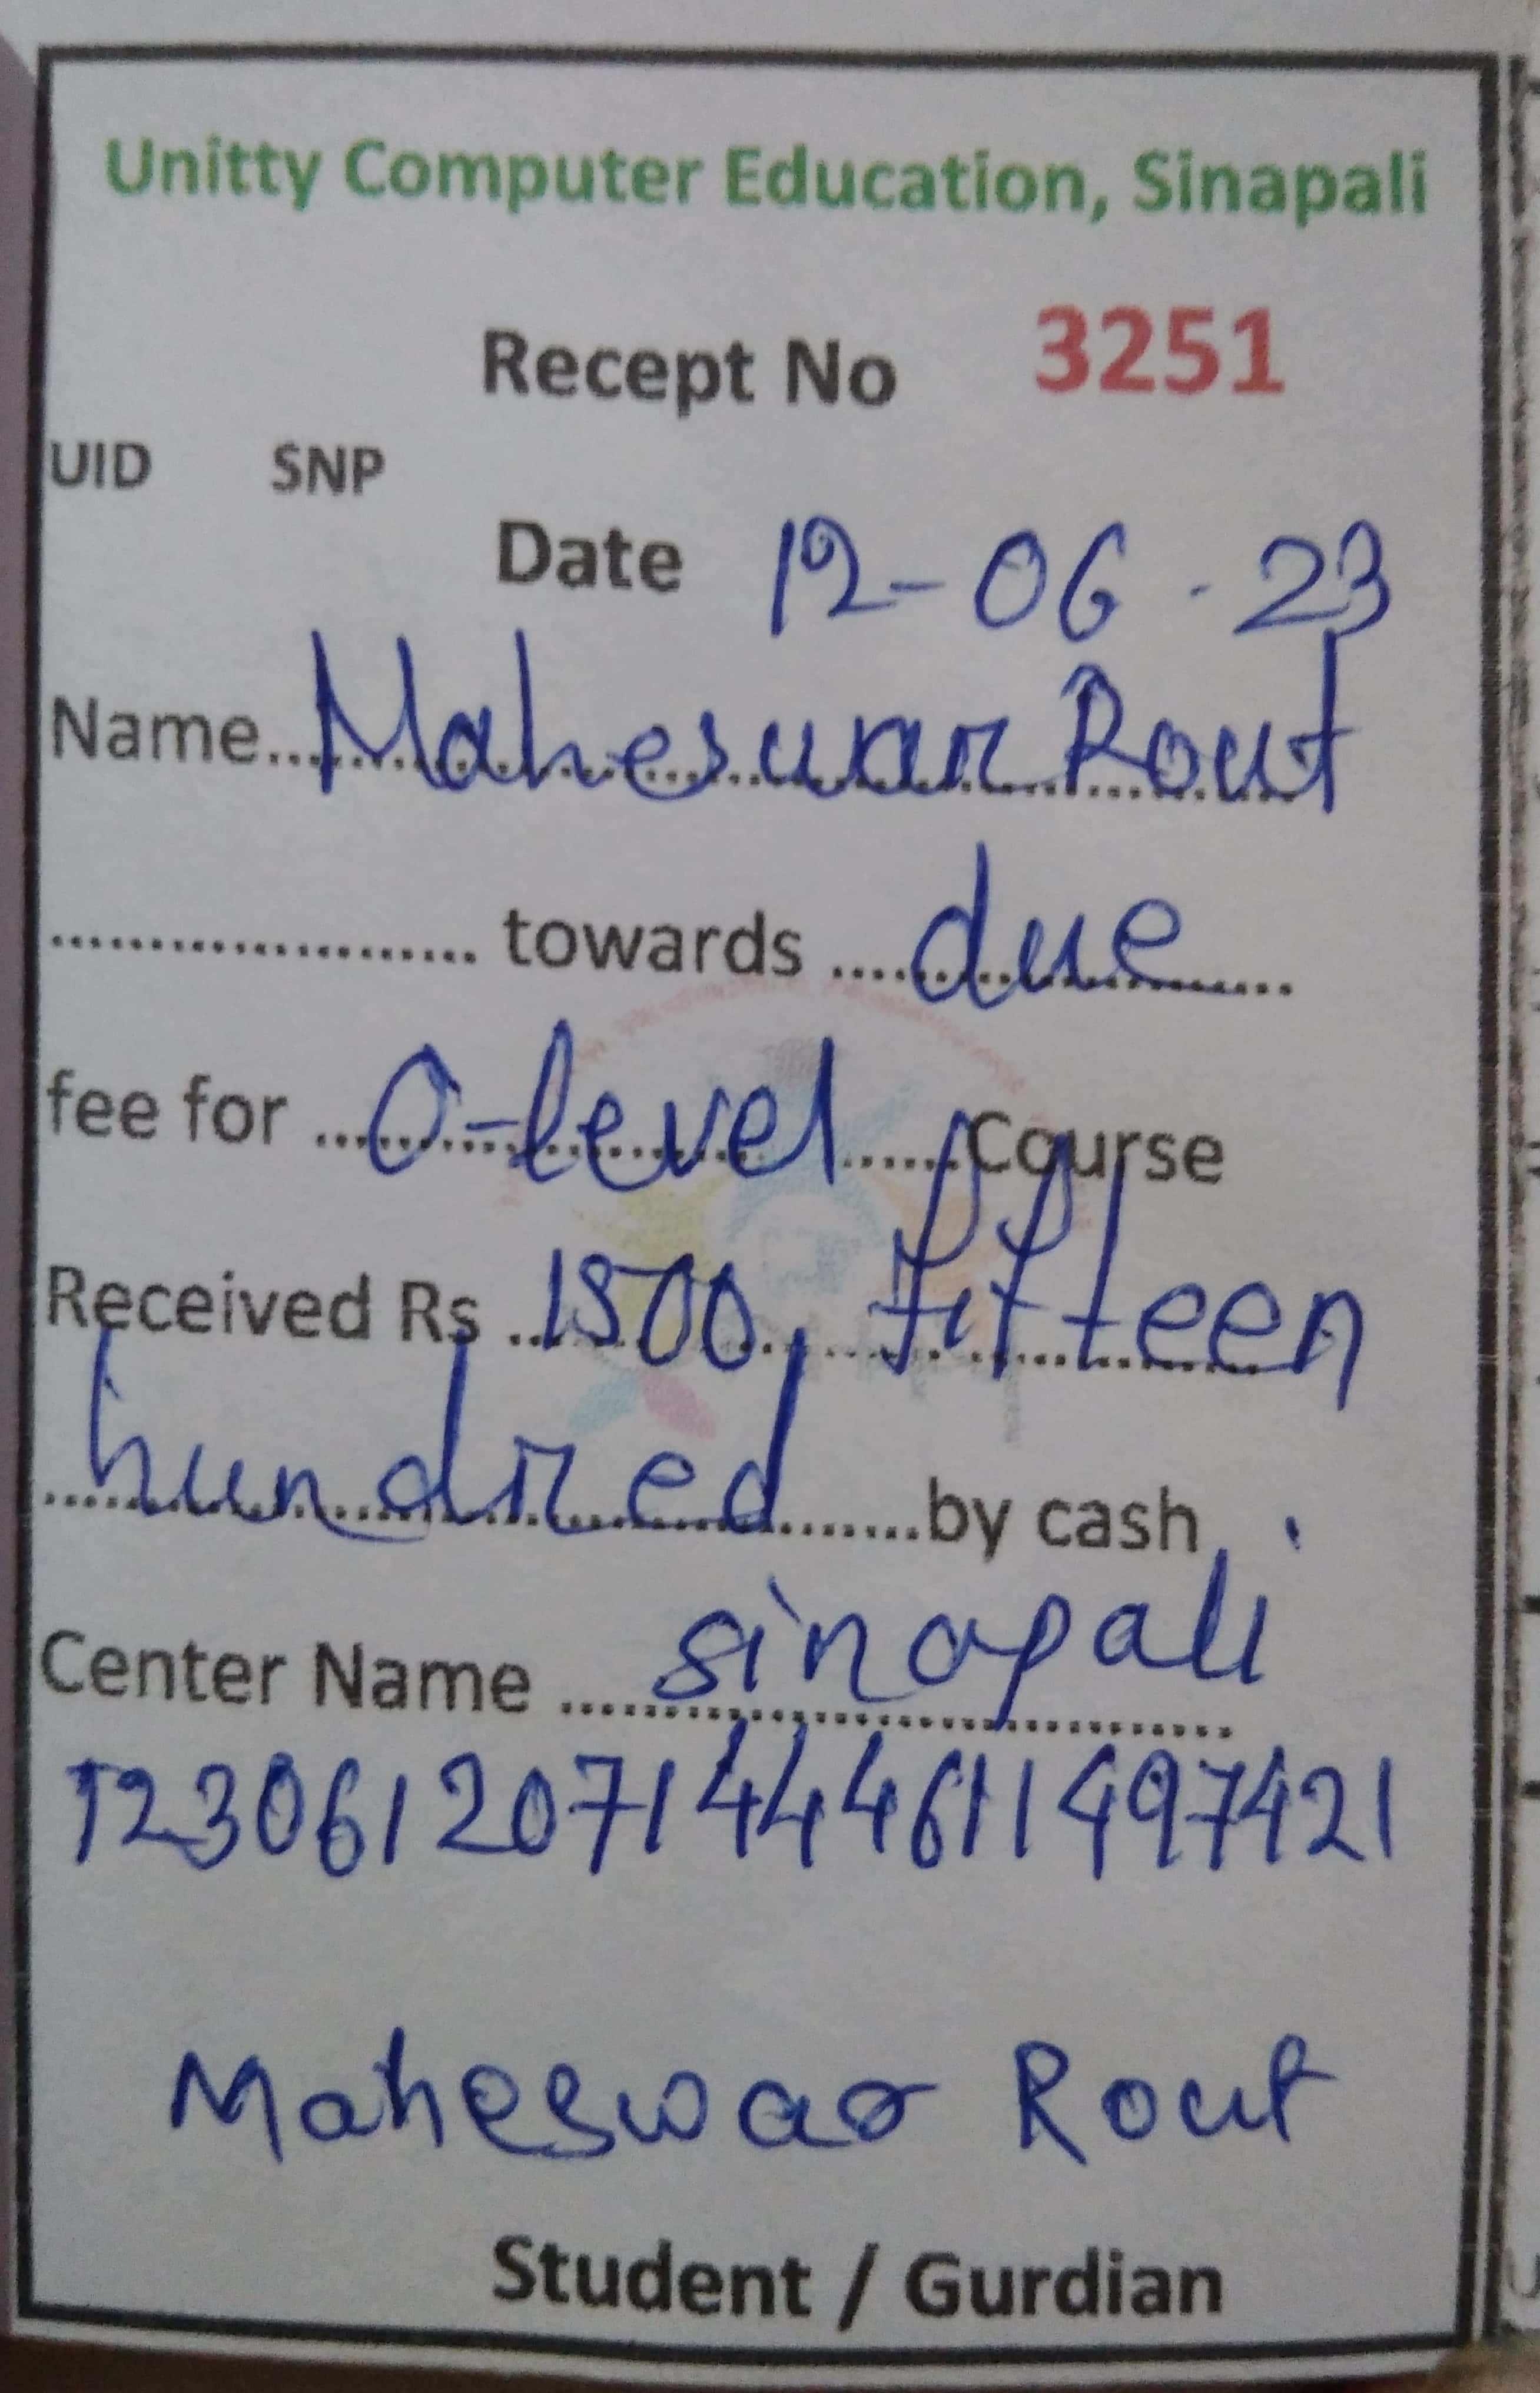 Unitty Computer Education, Sinapali
Recept No 3251
UID SNP
Date 12-06-23
Name....Maheswar Rout
.................... towards ....due....
fee for ....O-level....Course
Received Rs ...1500, fifteen
....hundred.......by cash
Center Name ....sinapali
T2306120714446111497421
Maheswar Rout
Student / Gurdian